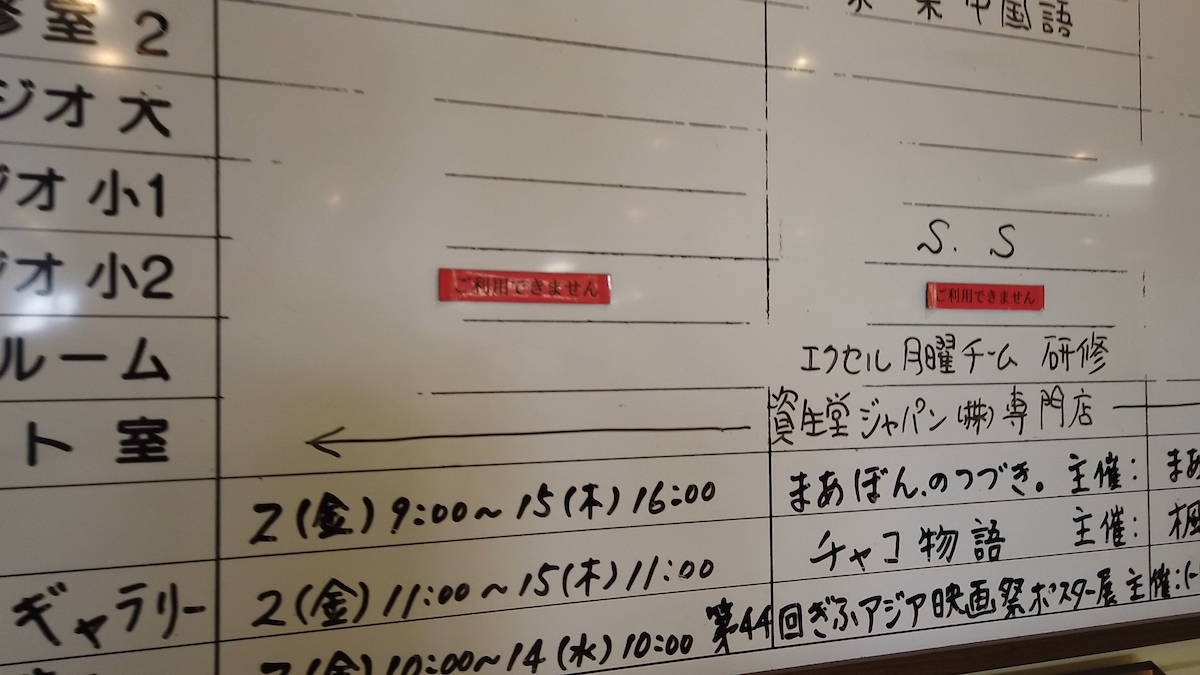 室 2
中国語
ジオ 大
ジオ 小1
S. S
オ 小2
ご利用できません
ご利用できません
ルーム
エクセル 月曜チーム 研修
ト 室
資生堂ジャパン(株)専門店
2(金) 9:00〜15(木) 16:00
まあぼん.のつづき。 主催: まあ
ギャラリー
2(金) 11:00〜15(木) 11:00
チャコ物語 主催: 楓
(金) 10:00〜14(水) 10:00
第44回ぎふアジア映画祭ポスター展 主催: